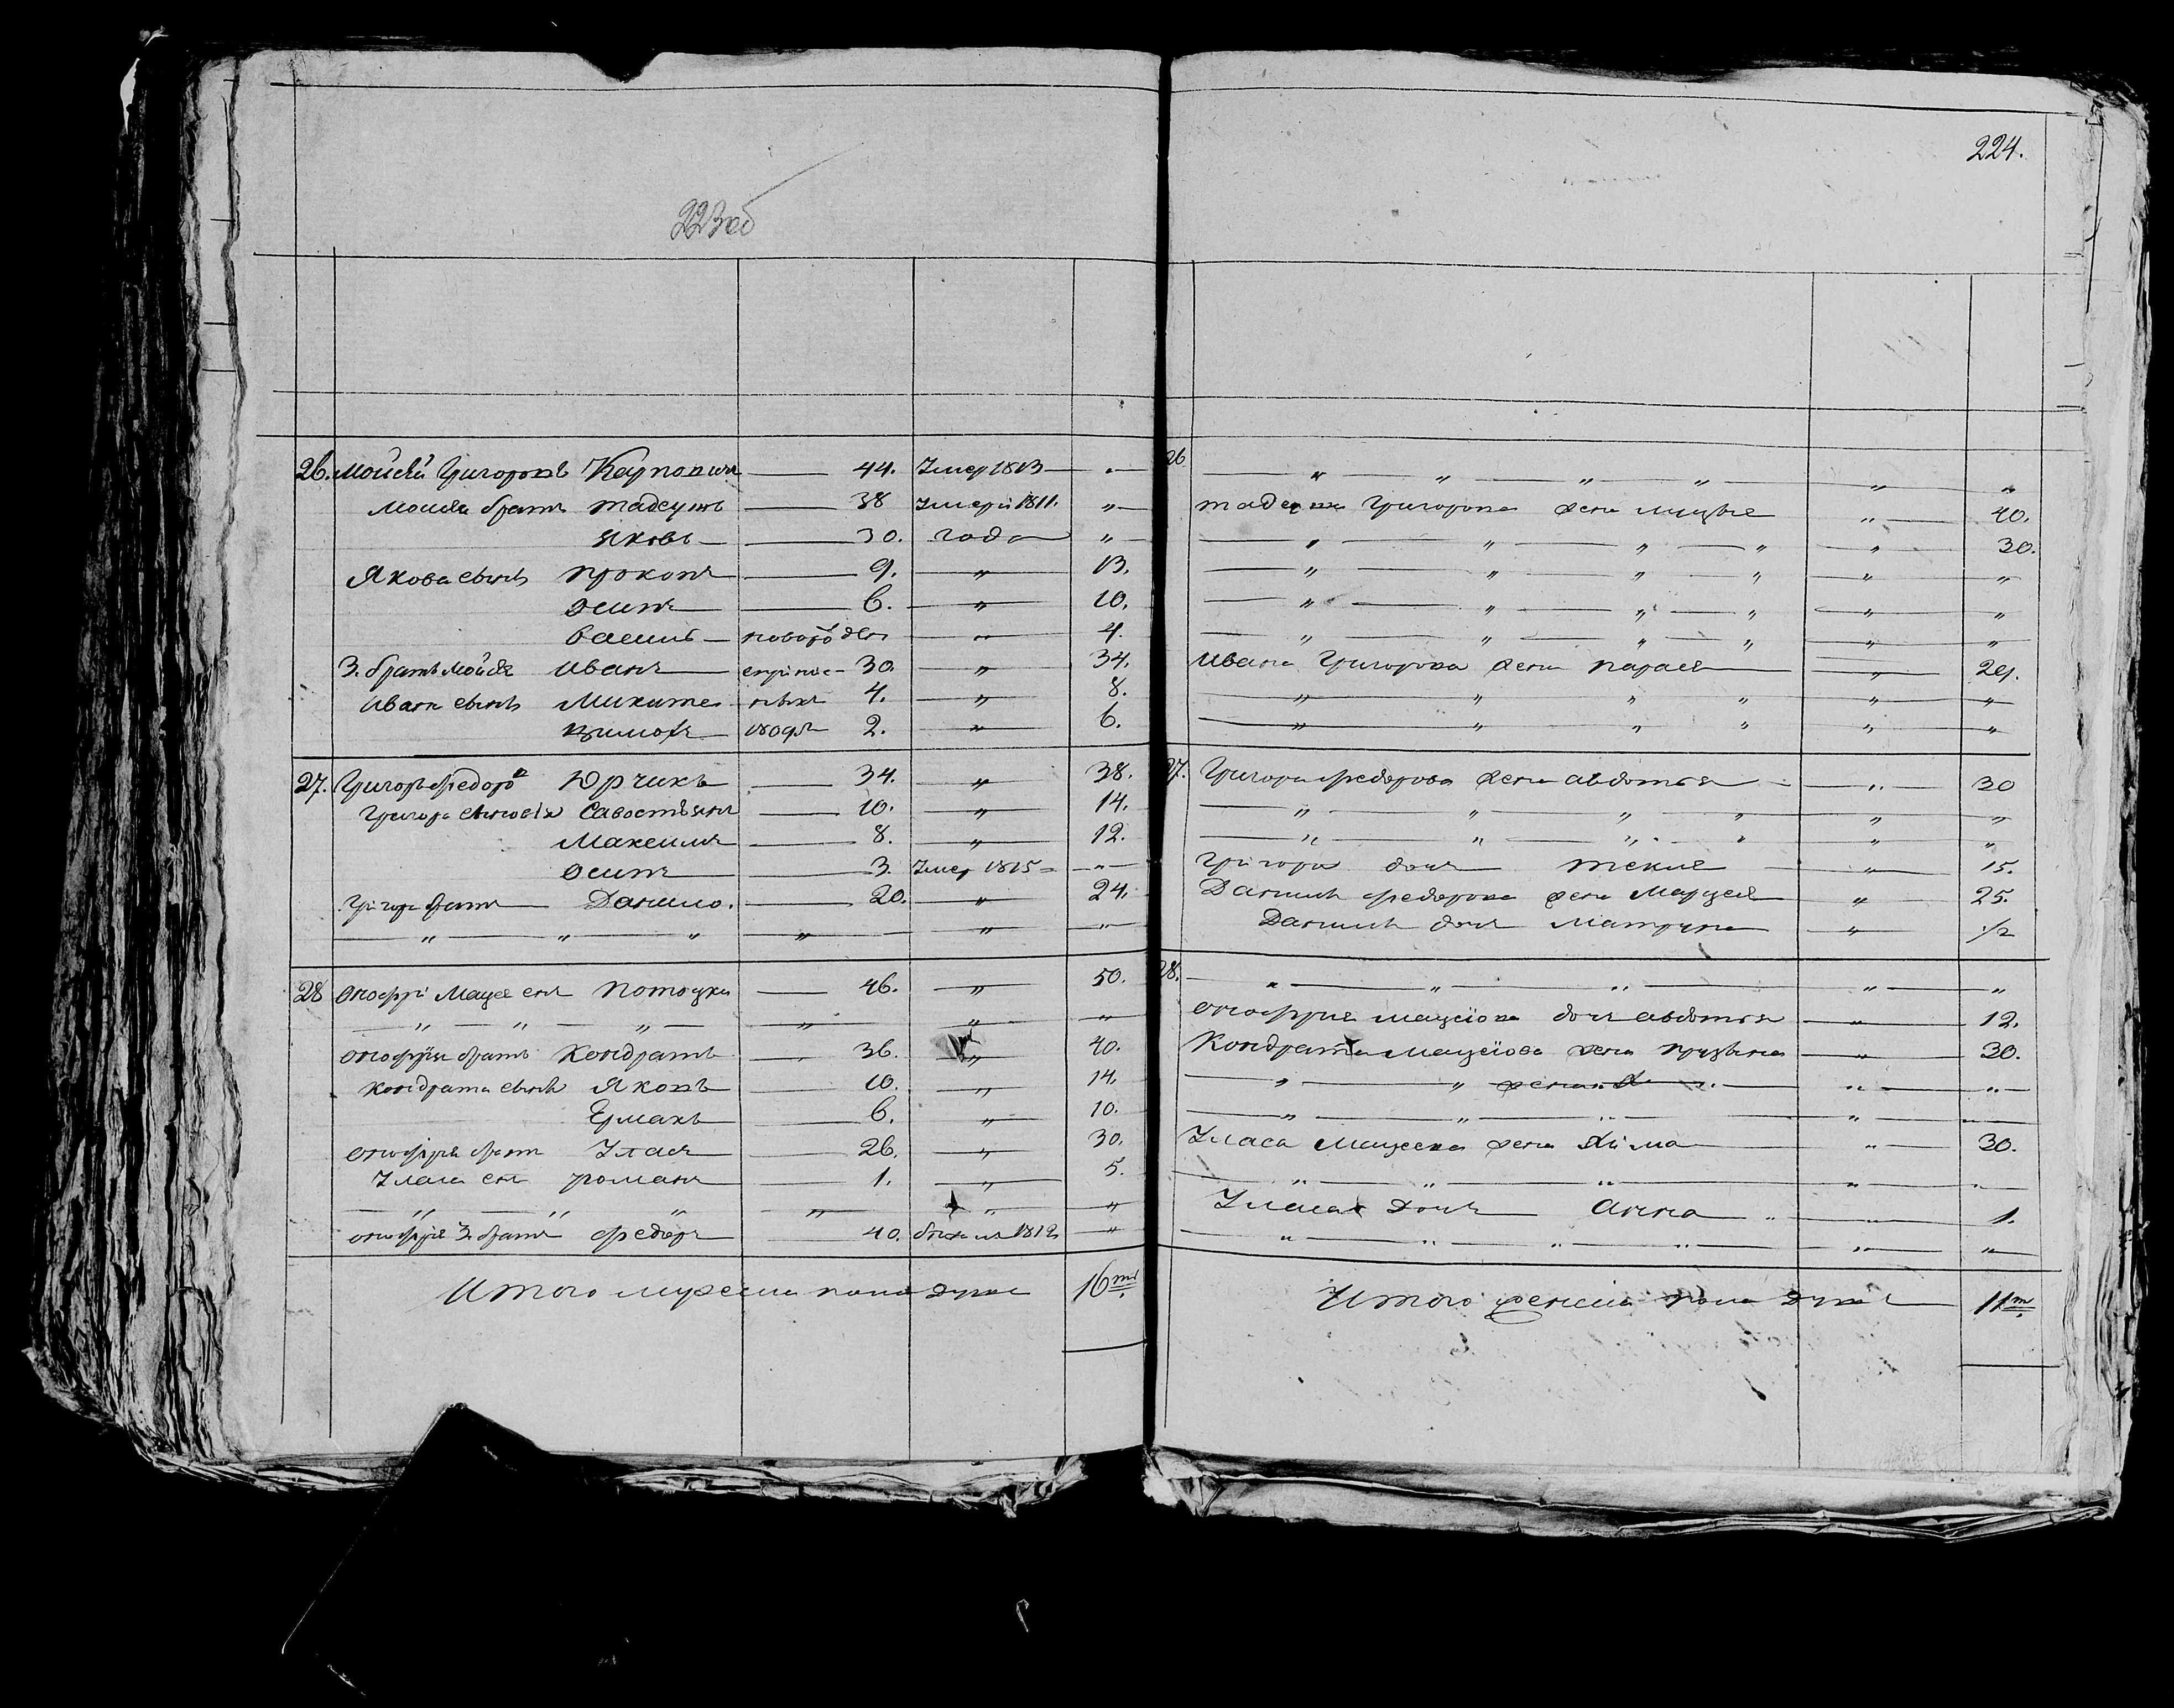 223об
26. Мойсей Григоровъ Карпович 44. Умер 1813 "
Мойсея братъ Тадеушъ 38 Умеръ 1811. "
Яковъ 30. года "
Якова сынъ Прокопъ 9. " 13.
Осипъ 6. " 10.
Василь новорожден " 4.
3. братъ Мойсея Иванъ 30. " 34.
Ивана сынъ Микита 4. " 8.
2. " 6.
27. Григоръ Федоров Юрчикъ 34. " 38.
Григора сыновья Савостьянъ 10. " 14.
Максимъ 8. " 12.
Осипъ 3. Умер 1815 "
Григора братъ Данило. 20. " 24.
" " " " " "
28 Онофрі Мацея сынъ Потоцки 46. " 50.
" " " " " "
Онофрія братъ Кондратъ 36. " 40.
Кондрата сынъ Яковъ 10. " 14.
Ермакъ 6. " 10.
Онофрія братъ Уласъ 26. " 30.
Уласа сын Романъ 1. " 5.
" " " " " "
Онофрія 3. братъ Федоръ 40. 1812 "
Итого мужеска пола душъ 16
224.
26 " " " " " "
Тадеуша Григорова жена Люцыя " 40.
" " " " " 30.
" " " " " "
" " " " " "
" " " " " "
Ивана Григорова жена Парася " 29.
" " " " " "
" " " " " "
27. Григора Федорова жена Авдотья " 30
" " " " " "
" " " " " "
Григора дочь Текля " 15.
Данила Федорова жена Марцеля " 25.
Данила дочь Матруна " 1/2
28. " " " " "
Онофрия Мацеіова дочь Авдотья " 12.
Кондрата Мацеіова жена Прузына " 30.
" " жена " "
" " " " "
Уласа Мацеева жена Хима " 30.
" " " " "
Уласа дочь Анна " 1.
" " " " " "
Итого женска пола душъ 11